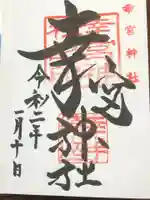 幸宮神社
幸宮神社
令和二年
月十日